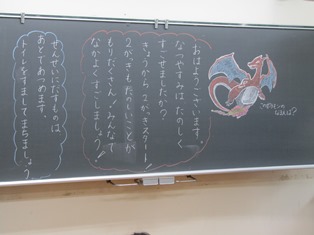 おはようございます。
なつやすみは たのしく
すごせましたか？
きょうから 2がっきスタート！
2がっきも たのしいことが
もりだくさん！みんなで
なかよくすごしましょう！
せんせいにだすものは
あとであつめます
トイレをすましてまちましょう。
なまえは？